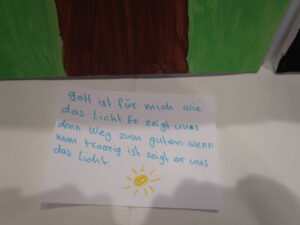 Gott ist für mich wie
das Licht Er zeigt unns
denn Weg zum guten. wenn
man traorig ist zeigt er uns
das Licht.